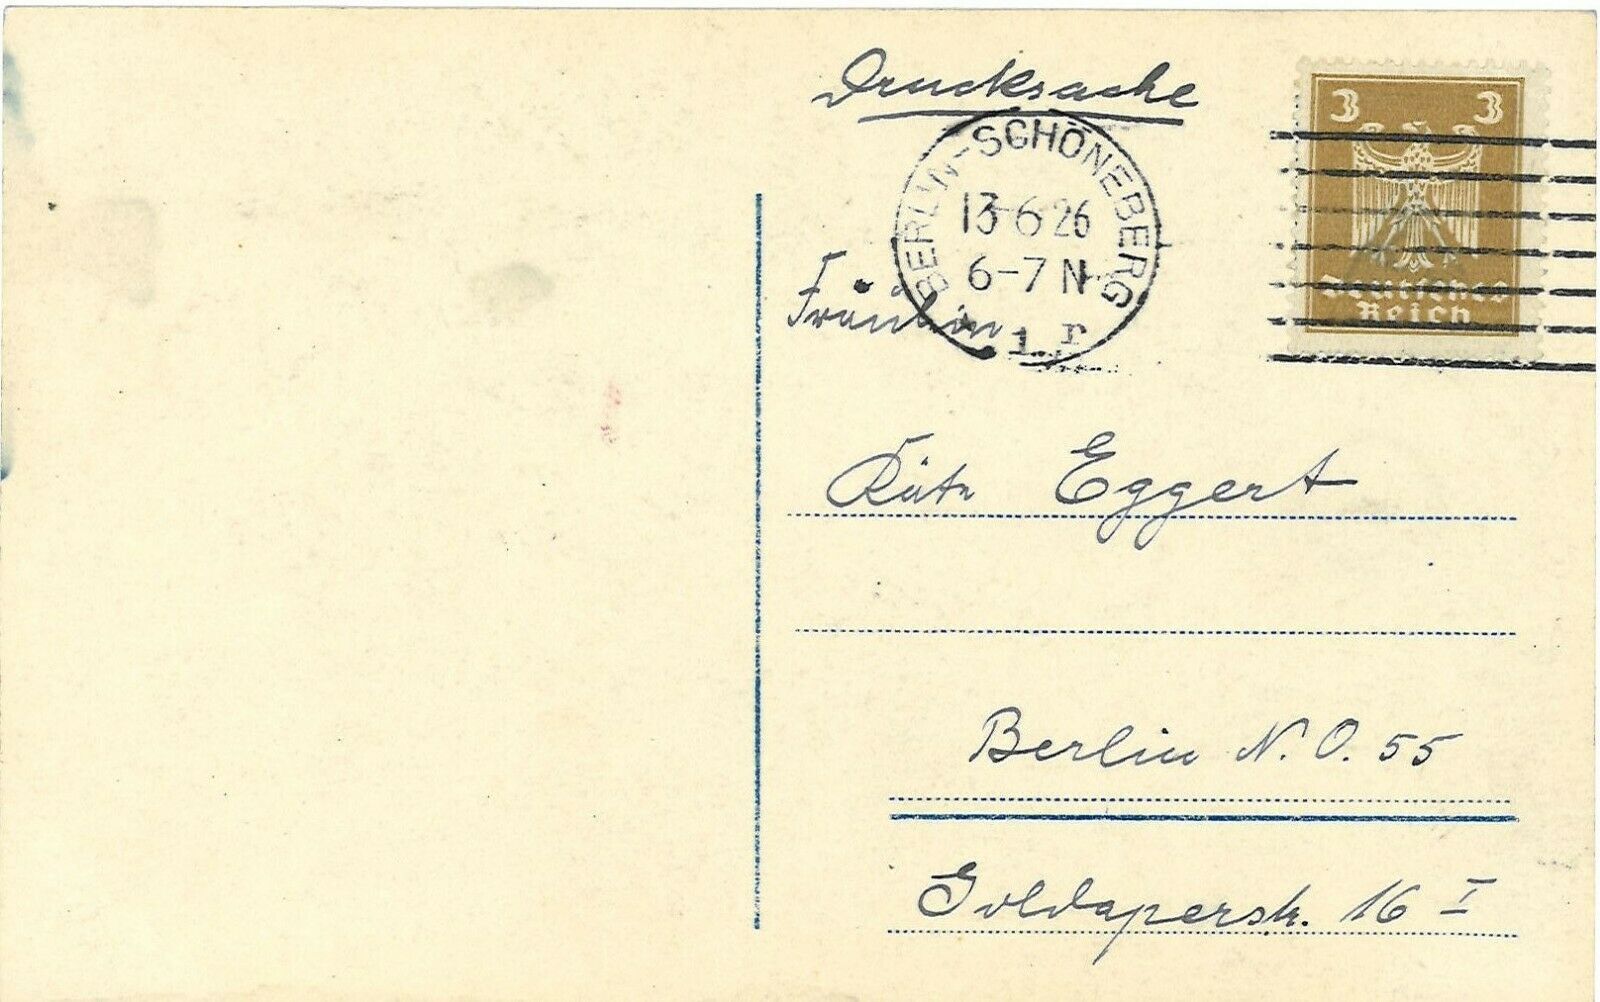 Drucksache
3 3
Deutsches
Reich
BERLIN-SCHÖNEBERG
13-6 26
6-7 N
1 r
Fräulein
Käte Eggert
Berlin N.O. 55
Goldaperstr. 16 I